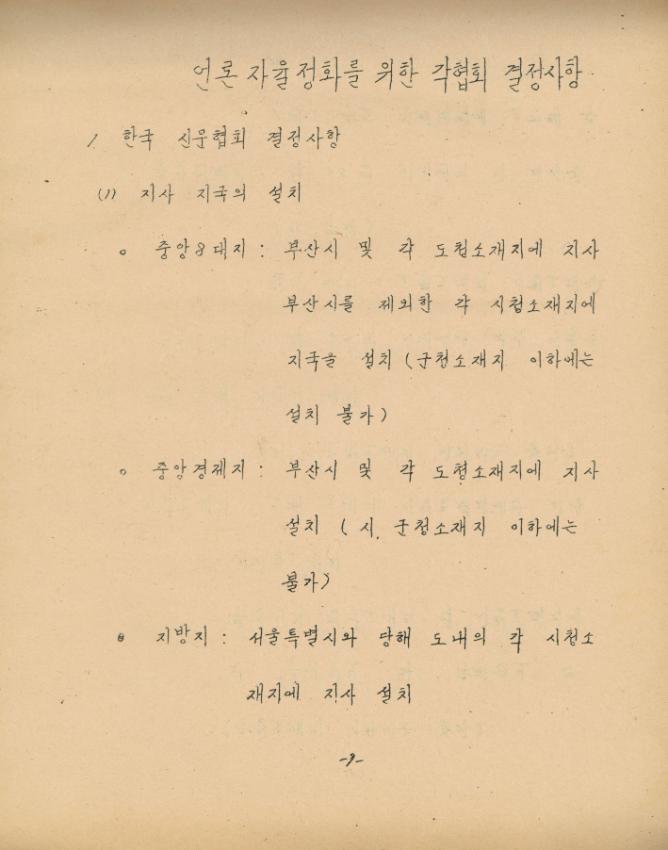 언론 자율정화를 위한 각협회 결정사항
1 한국 신문협회 결정사항
(1) 지사 지국의 설치
o 중앙8대지 : 부산시 및 각 도청소재지에 지사
부산시를 제외한 각 시청소재지에
지국을 설치 (군청소재지 이하에는
설치 불가)
o 중앙경제지 : 부산시 및 각 도청소재지에 지사
설치 ( 시, 군청소재지 이하에는
불가)
o 지방지 : 서울특별시와 당해 도내의 각 시청소
재지에 지사 설치
-9-